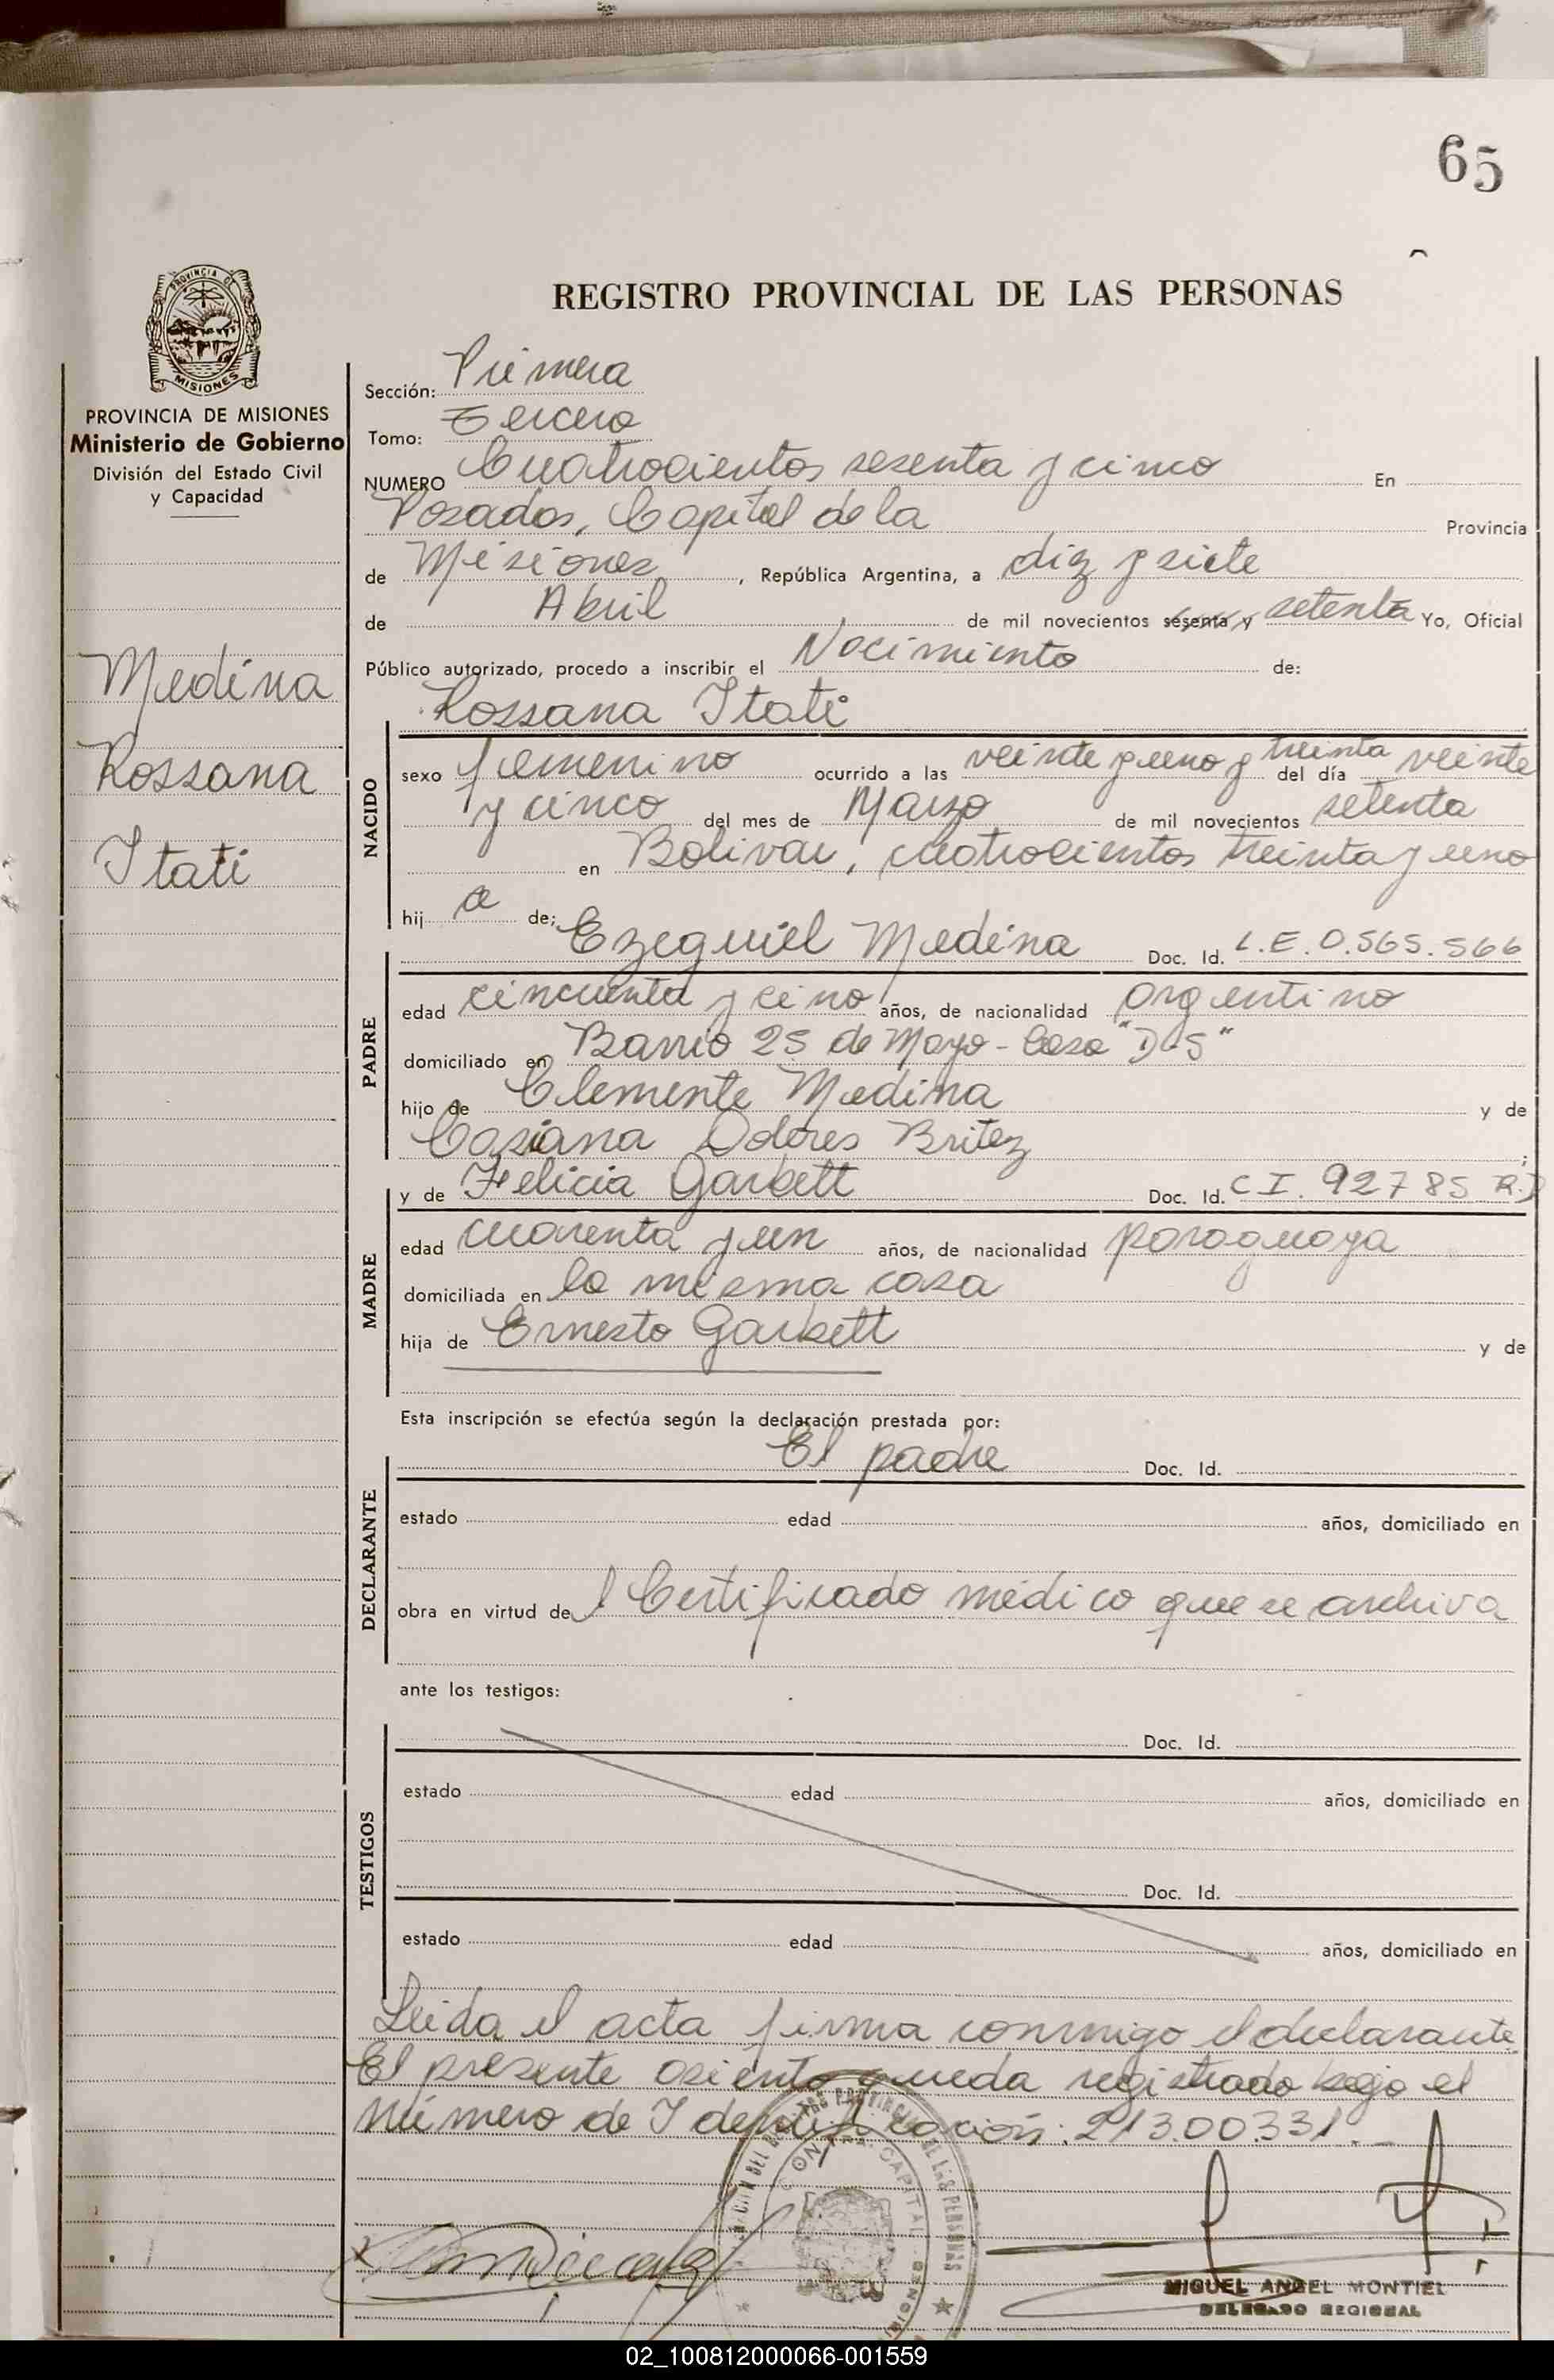 65
PROVINCIA DE
MISIONES
PROVINCIA DE MISIONES
Ministerio de Gobierno
División del Estado Civil
y Capacidad
Medina
Rossana
Itati
REGISTRO PROVINCIAL DE LAS PERSONAS
Sección: Primera
Tomo: Tercero
NUMERO Cuatrocientos sesenta y cinco En
Posadas, Capital de la Provincia
de Misiones, República Argentina, a diz y siete
de Abril de mil novecientos sesenta y setenta Yo, Oficial
Público autorizado, procedo a inscribir el Nacimiento de:
Rossana Itati
NACIDO
sexo femenino ocurrido a las veinte y uno y treinta del día veinte
y cinco del mes de Marzo de mil novecientos setenta
en Bolivar, cuatrocientos treinta y uno
hij a de:
Ezequiel Medina Doc. Id. L.E. 0.565.566
PADRE
edad cincuenta y cino años, de nacionalidad argentino
domiciliado en Barrio 25 de Mayo - Casa
hijo de Clemente Medina y de
Casiana Dolores Britez ;
y de Felicia Garbett Doc. Id. C I. 92785 R.P
MADRE
edad cuarenta y un años, de nacionalidad paraguaya
domiciliada en la misma casa
hija de Ernesto Garbett y de
Esta inscripción se efectúa según la declaración prestada por:
El padre Doc. Id.
DECLARANTE
estado edad años, domiciliado en
obra en virtud del Certificado médico que se archiva
ante los testigos:
Doc. Id.
TESTIGOS
estado edad años, domiciliado en
Doc. Id.
estado edad años, domiciliado en
Leida el acta firma conmigo el declarante.
El presente asiento queda registrado bajo el
Número de Identificación: 21300331.
MIGUEL ANGEL MONTIEL
DELEGADO REGIONAL
02_100812000066-001559